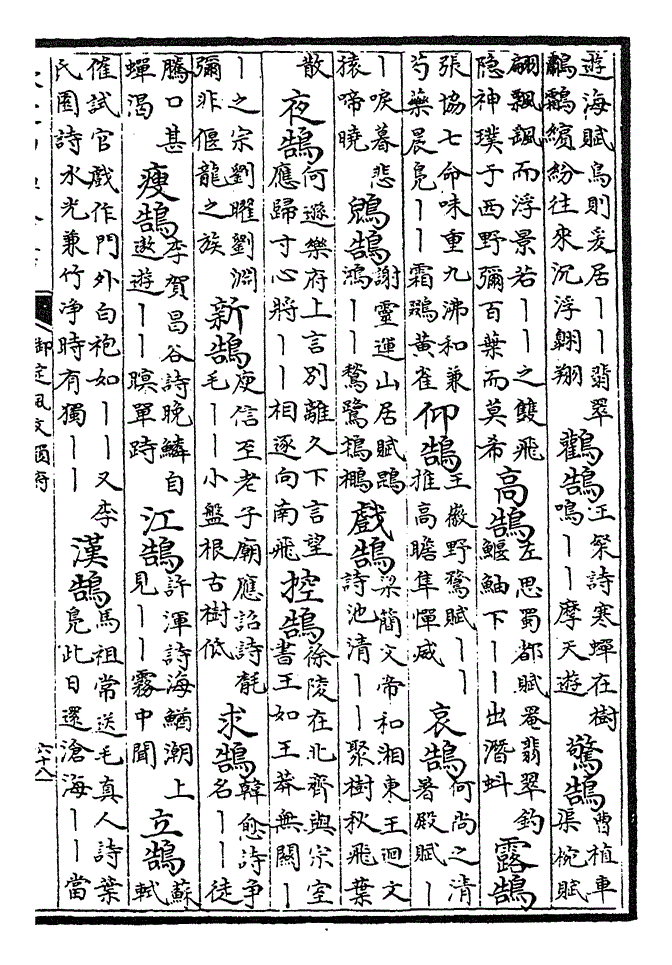 遊海賦鳥則爰居丨丨翡翠鸕鷀繽紛往來沉浮翺翔
鸛鵠王粲詩寒蟬在樹鳴丨丨摩天遊
驚鵠曹植車渠椀賦翩飄飄而浮景若丨丨之雙飛隐神璞于西野彌百葉而莫希
高鵠左思蜀都賦罨翡翠鈎鰋鮋下丨丨出潛蚪
露鵠張協七命味重九沸和兼芍藥晨鳧丨丨霜鵽黃雀
仰鵠王徽野鶩賦丨丨推高瞻隼憚威
哀鵠何尚之清暑殿賦丨丨唳暮悲猿啼曉
鶂鵠謝靈運山居賦鵾鴻丨丨鶖鷺鴇䴋
戲鵠梁簡文帝和湘東王迴文詩池清丨丨聚樹秋飛葉散
夜鵠何遜樂府上言別離久下言望應歸寸心將丨丨相逐向南飛
控鵠徐陵在北齊與宗室書王如王莽無關丨丨之宗劉曜劉淵彌非偃龍之族
新鵠庾信至老子廟應詔詩毻毛丨丨小盤根古樹低
求鵠韓愈詩争名丨丨徒騰口甚蟬渴
瘦鵠李賀昌谷詩晚鱗自遨遊丨丨暝單跱
江鵠許渾詩海鰌潮上見丨丨霧中聞
立鵠蘇軾催試官戲作門外白袍如丨丨又李氏園詩水光兼竹净時有獨丨丨
漢鵠馬祖常送毛真人詩葉鳧此日還滄海丨丨當
御定佩文韻府
六十八